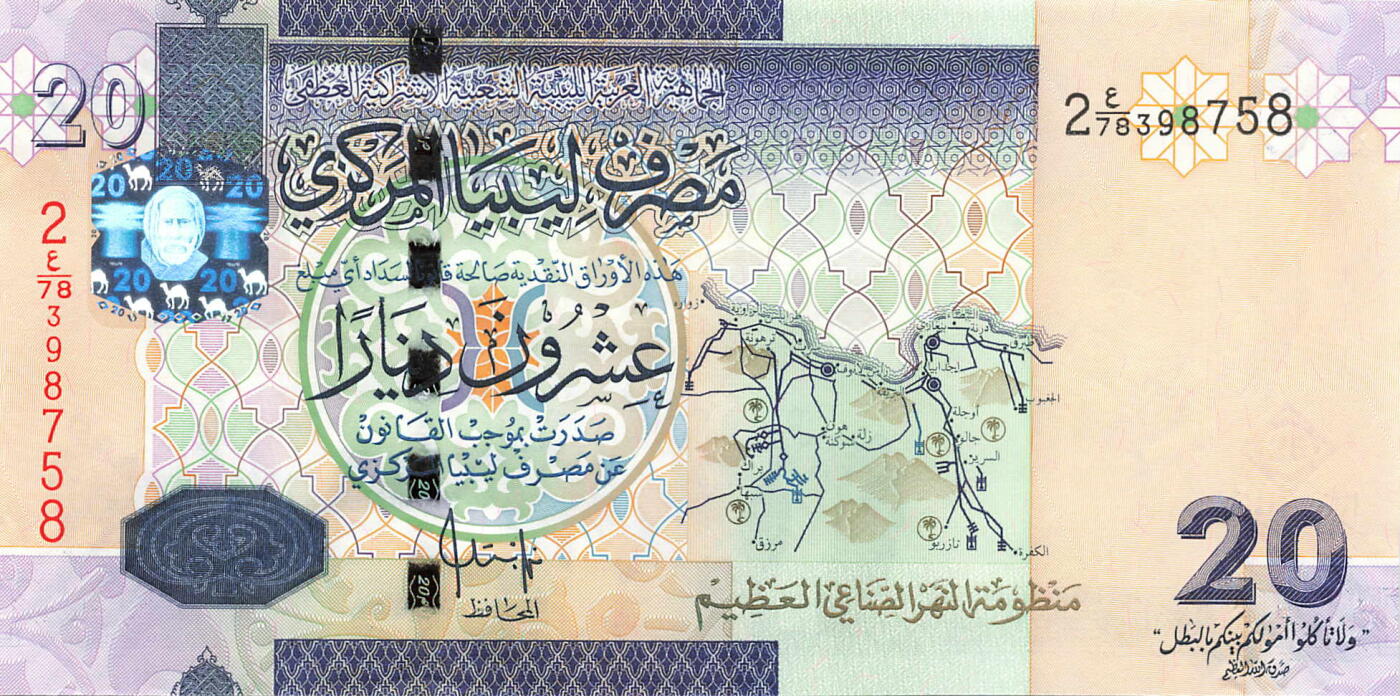 20
الجماهيرية العربية الليبية الشعبية الاشتراكية العظمى
2 ع/78 398758
مصرف ليبيا المركزي
20
20
20
20
2 ع/78 398758
هذه الأوراق النقدية صالحة لسداد أي مبلغ
عشرون دينارًا
صدرت بموجب القانون
عن مصرف ليبيا المركزي
المحافظ
زواره
ترهونة
درنة
اجدابيا
الجغبوب
أوجلة
جالو
هون
زلة
السرير
براك
سبها
مرزق
تازربو
الكفرة
منظومة النهر الصناعي العظيم
20
"ولا تأكلوا أمولكم بينكم بالبطل"
صدق الله العظيم